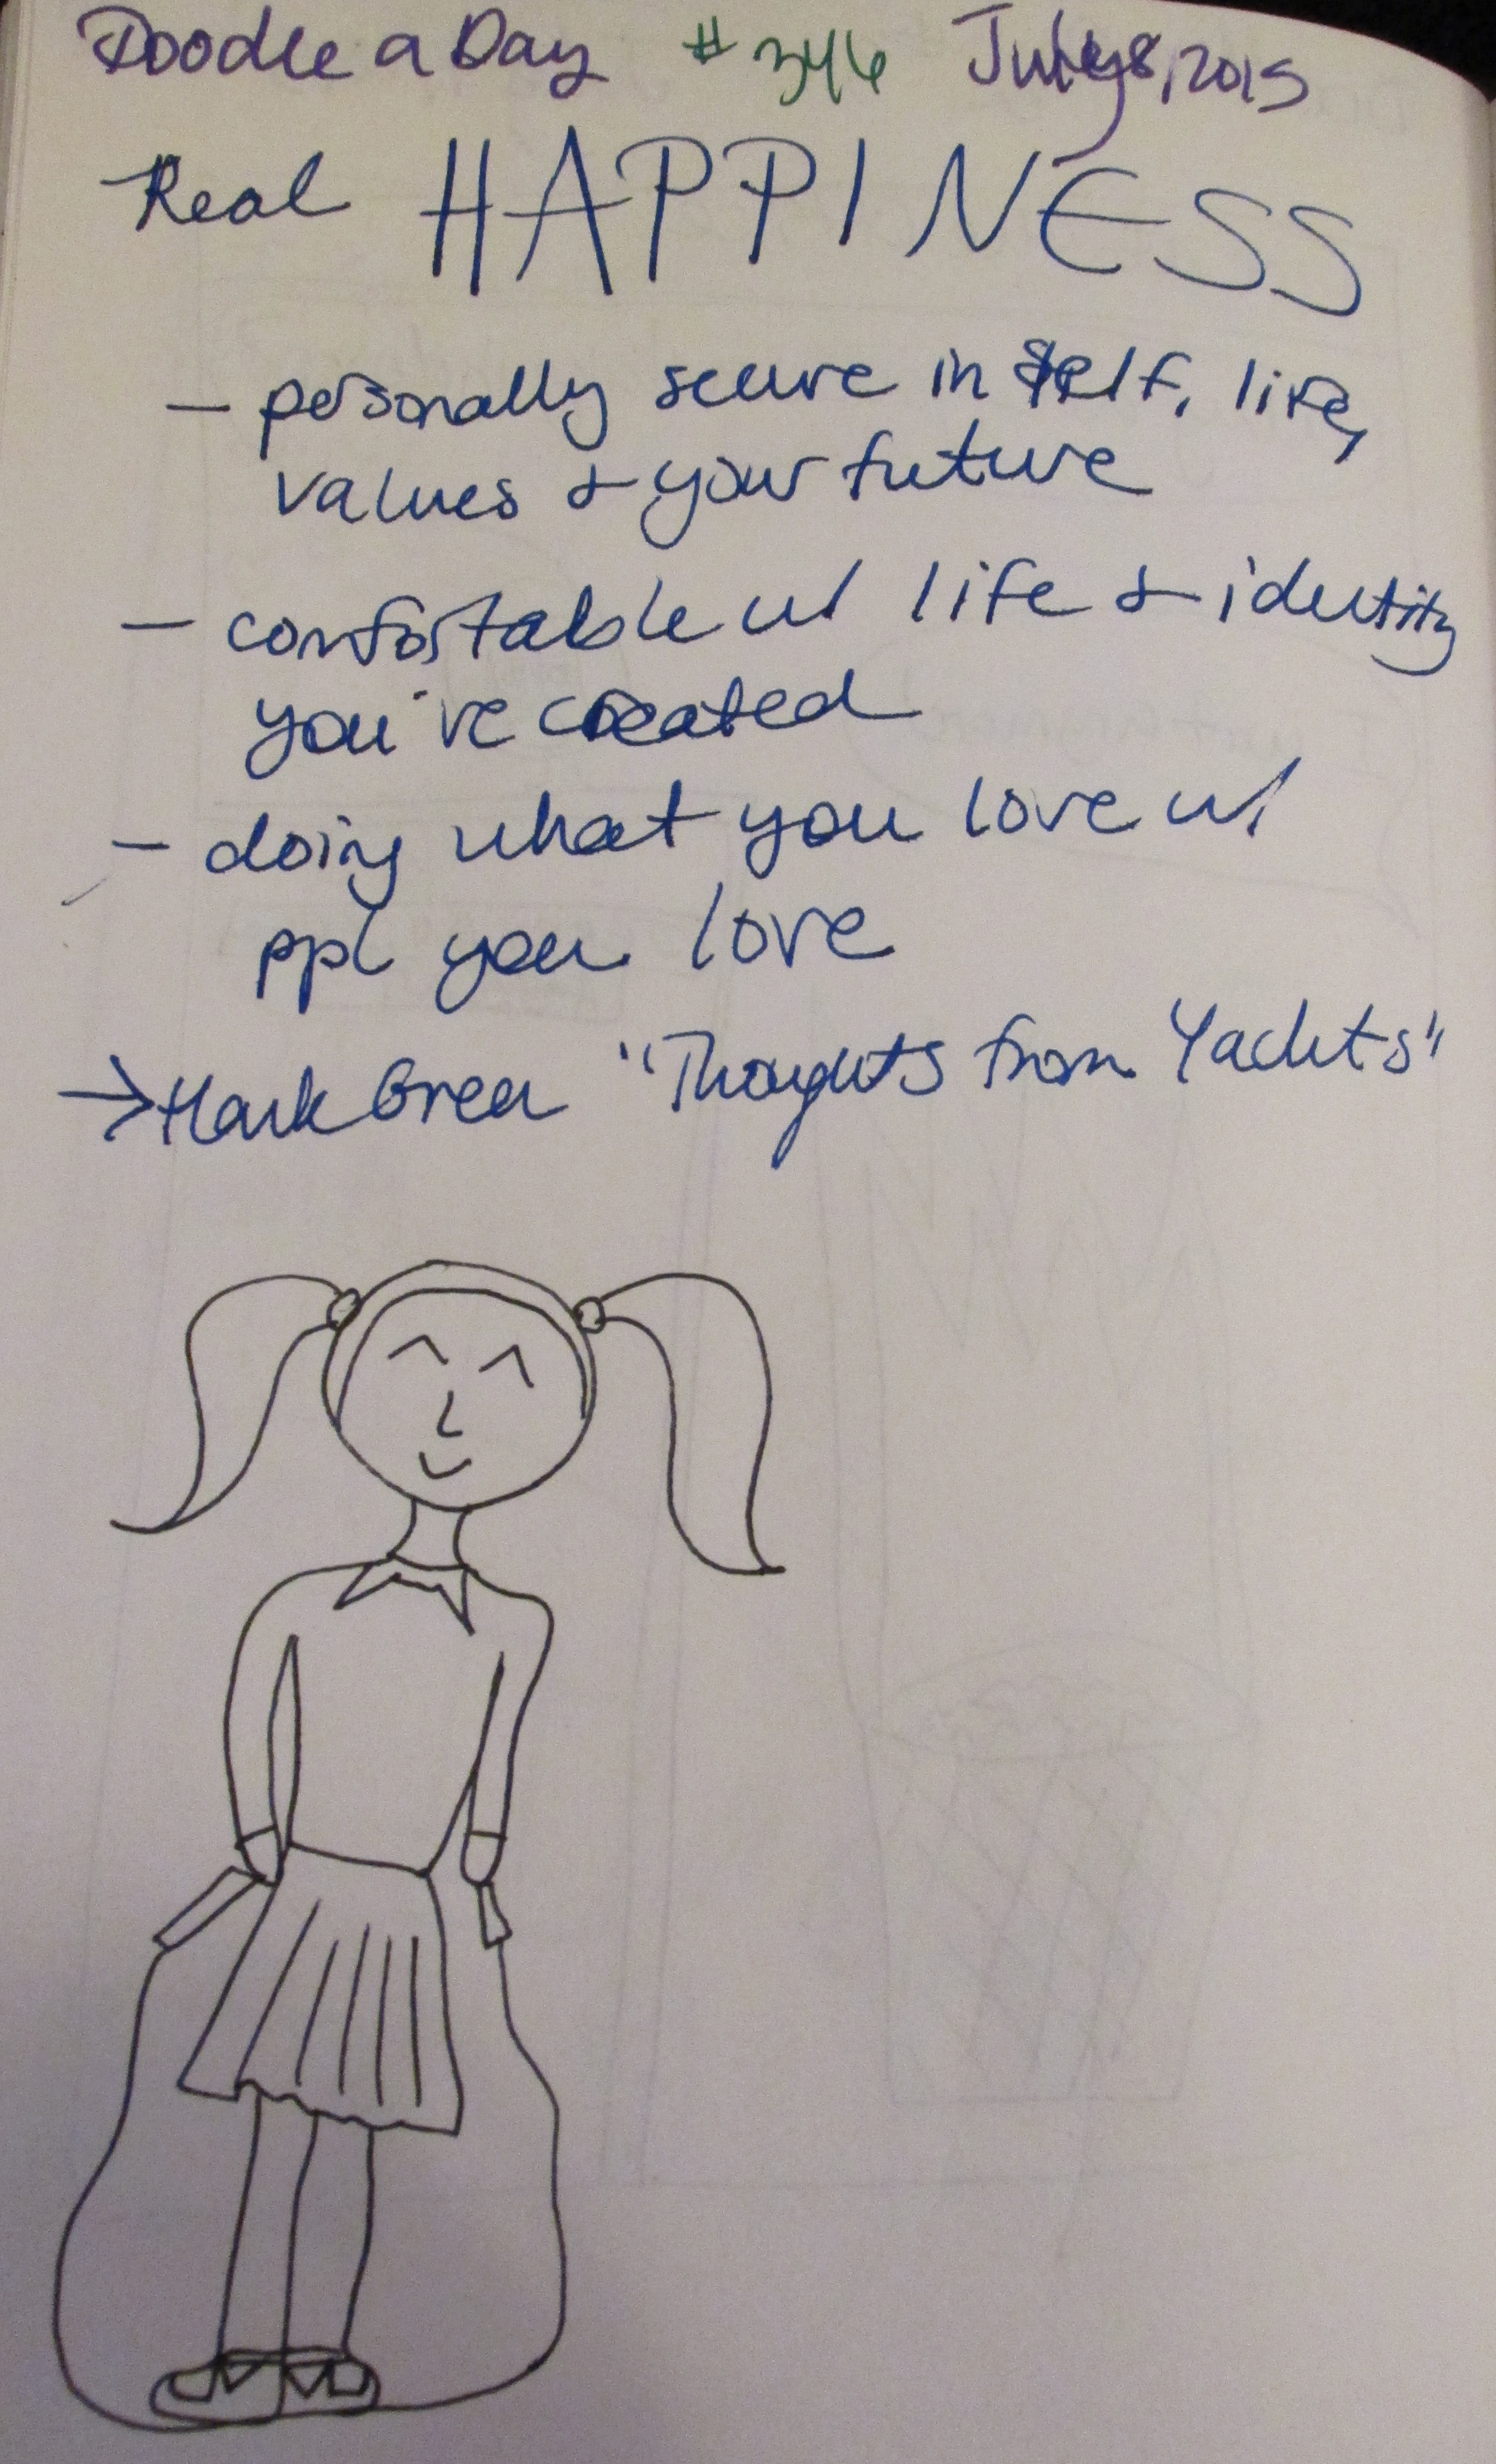 Doodle a Day #346 July 8, 2015
Real HAPPINESS
- personally secure in self, life,
values & your future
- comfortable w/ life & identity
you've created
- doing what you love w/
ppl you love
→ Mark Green "Thoughts from Yachts"